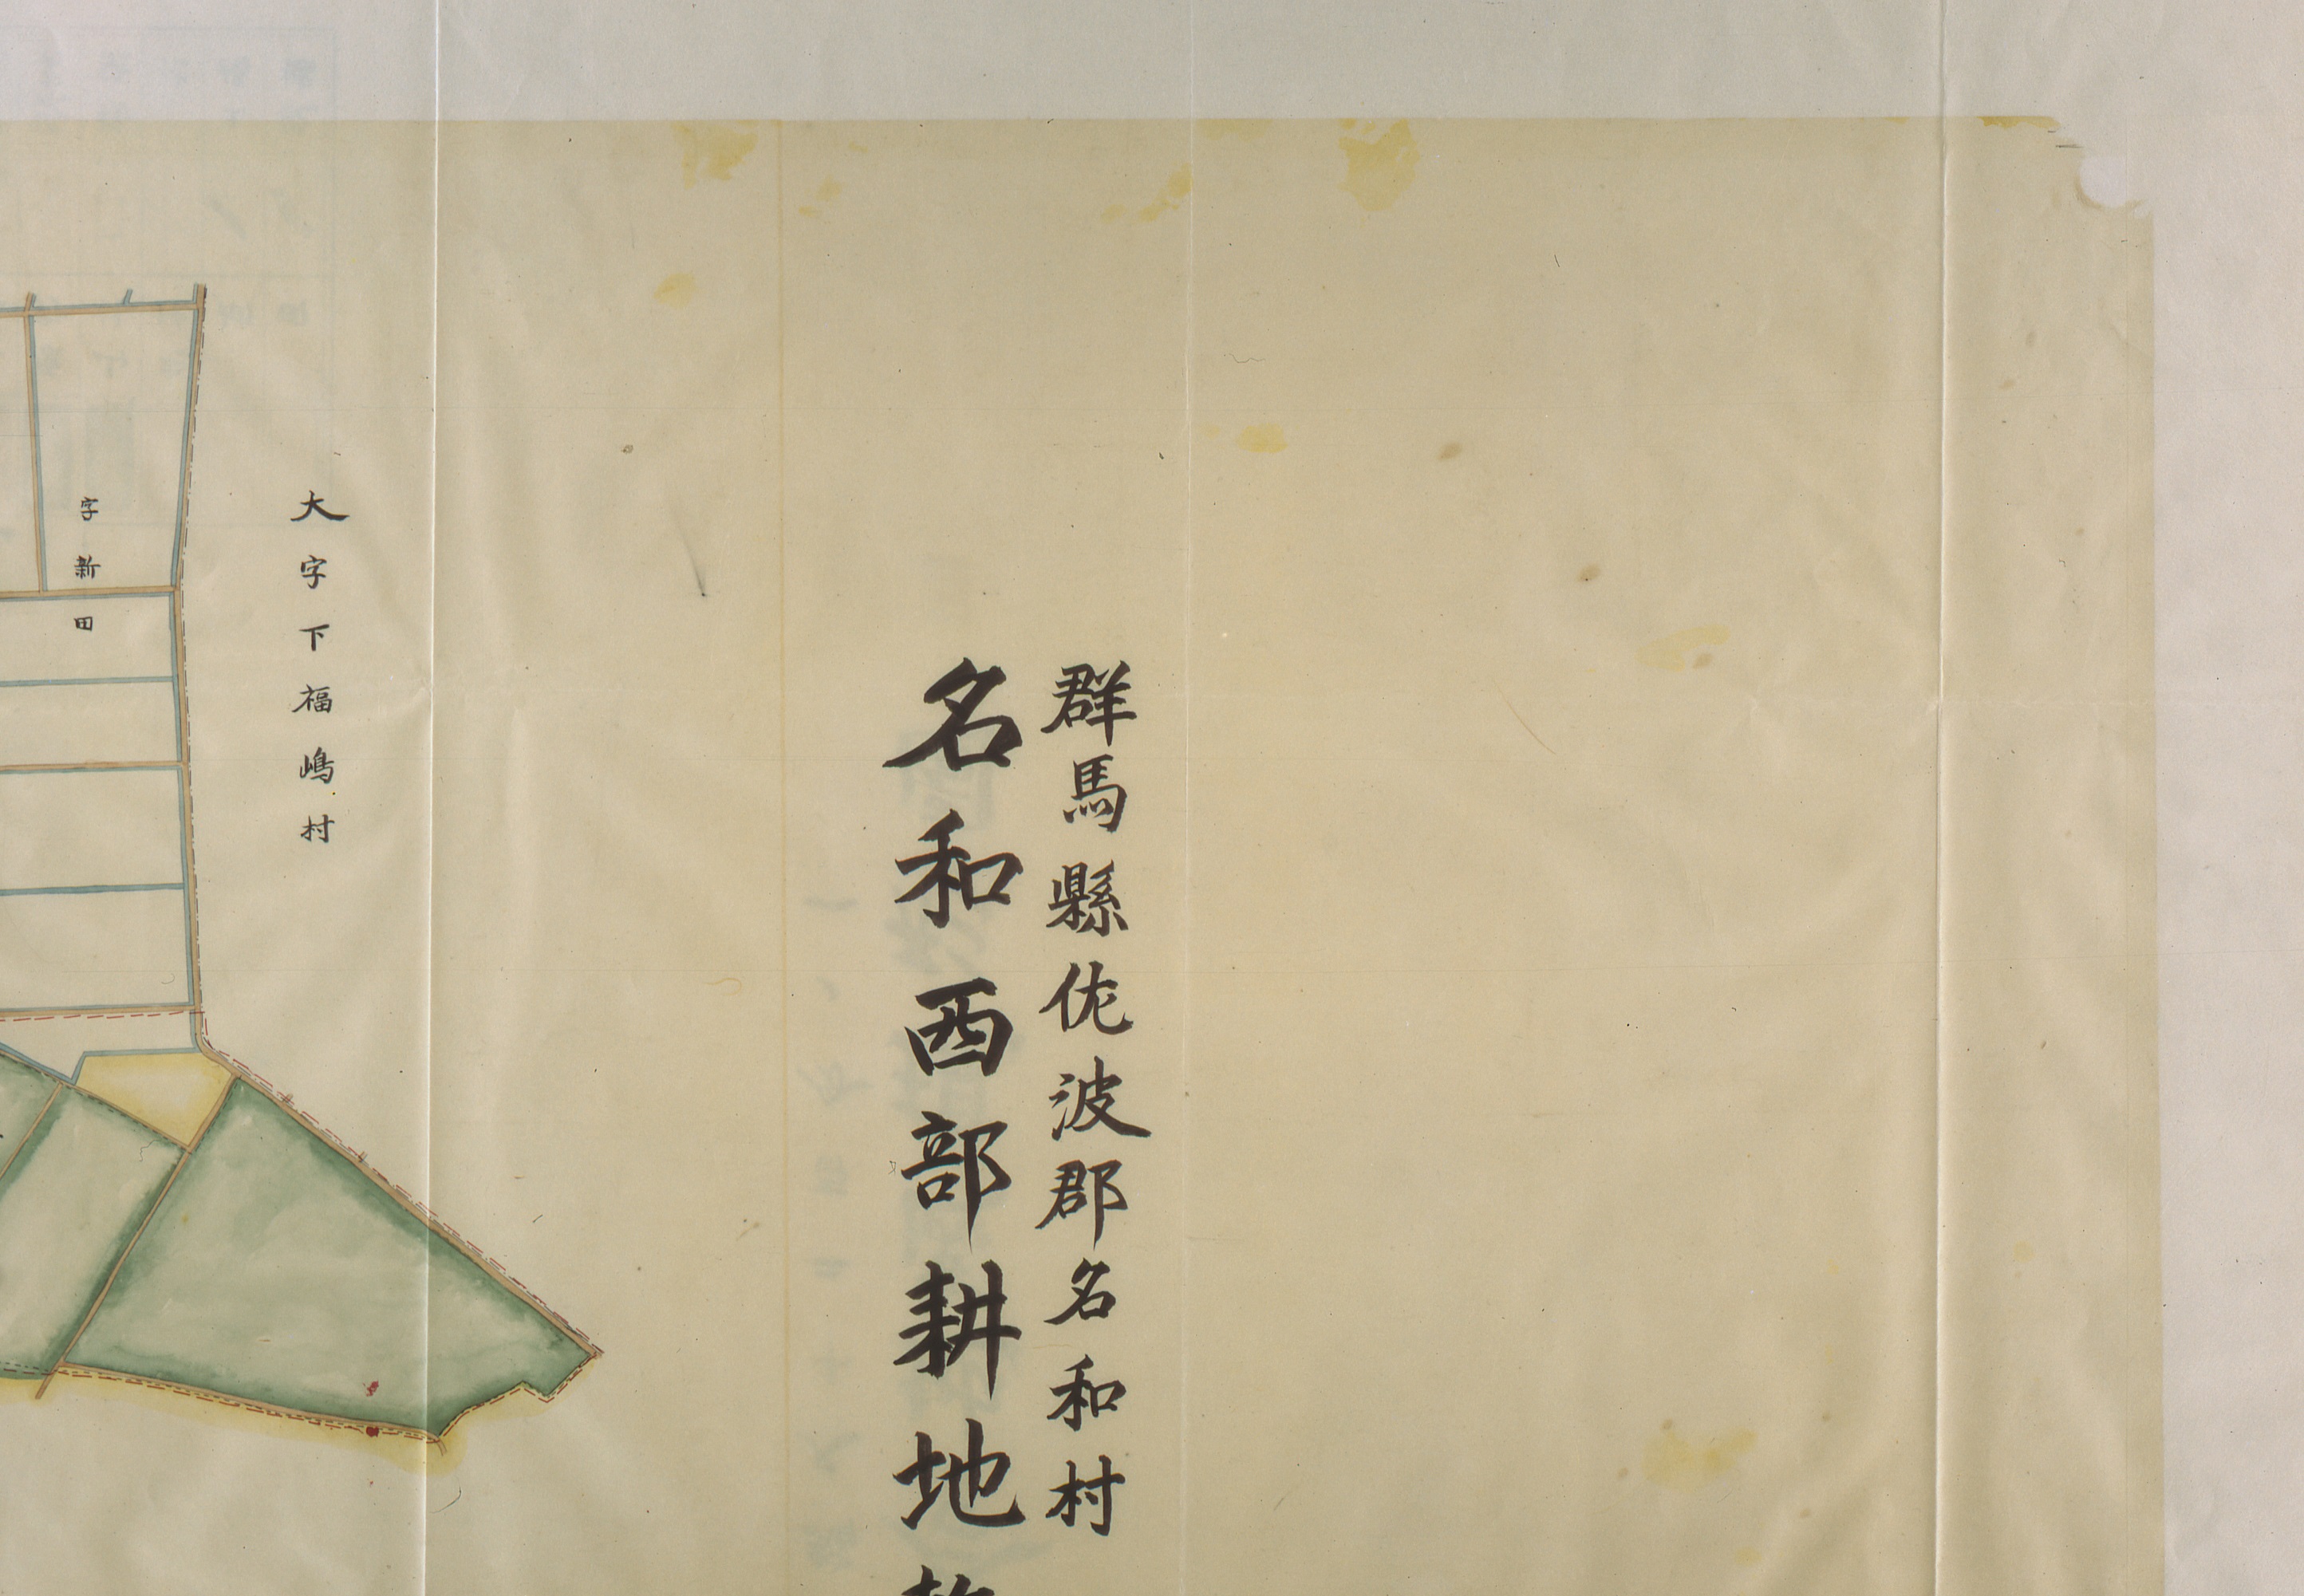 群馬縣佐波郡名和村
名和西部耕地
大字下福嶋村
字新田